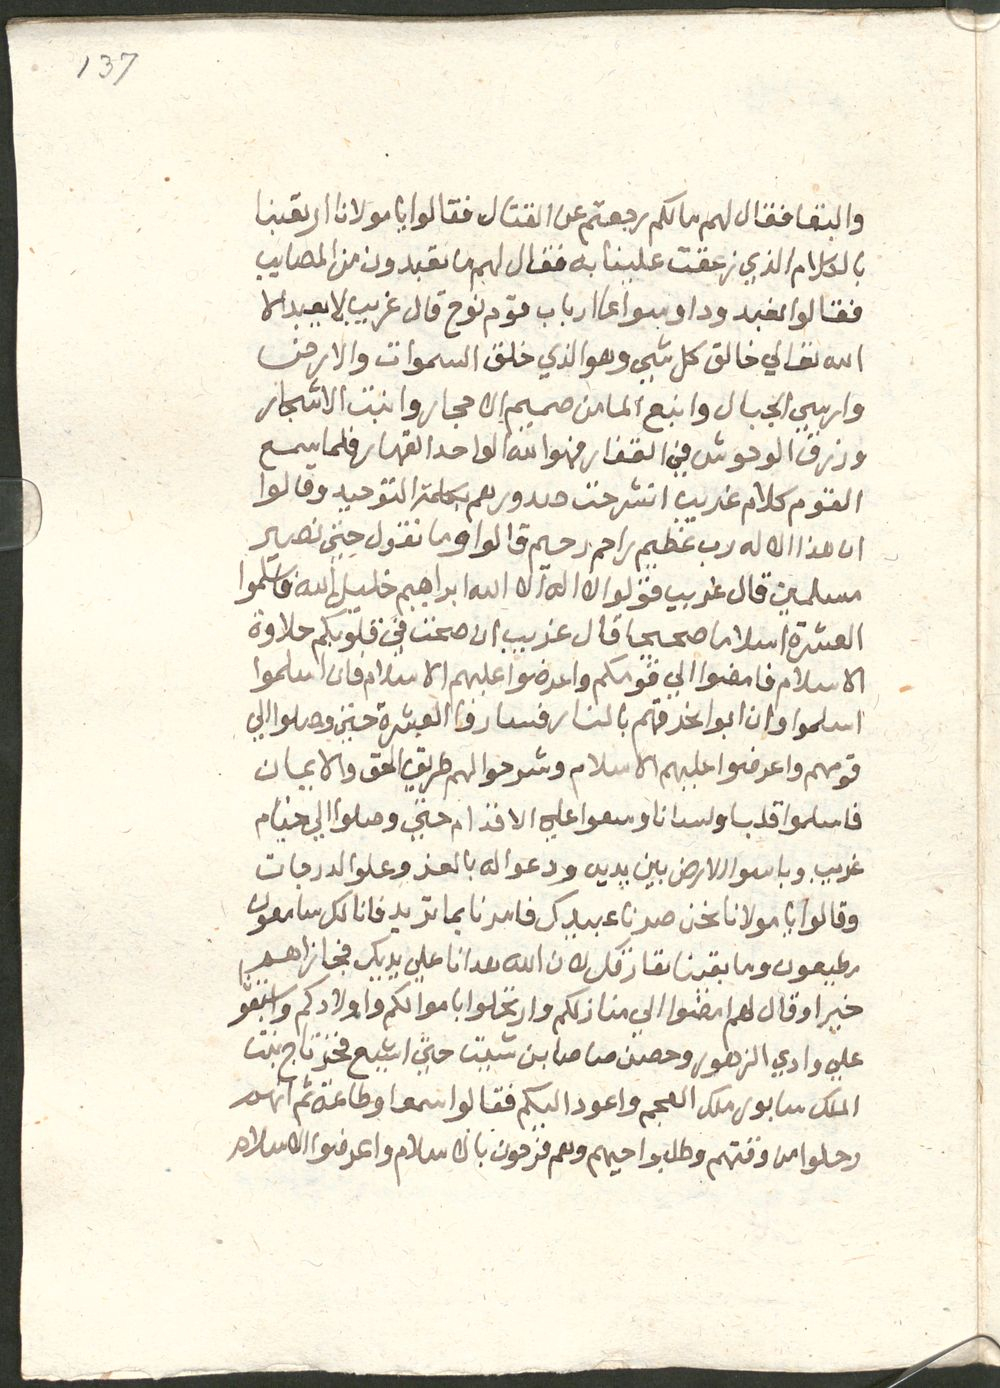 137
والبقا فقال لهم مالكم رجعتم عن القتال فقالوا يا مولانا ارتعبنا
بالكلام الذي زعقت علينا به فقال لهم ما تعبدون من المصايب
فقالوا نعبد ودا وسواعا ارباب قوم نوح قال غريب لا يعبد الا
الله تعالي خالق كل شي وهو الذي خلق السموات والارض
وارسي الجبال وانبع الما من صميم الاحجار وانبت الاشجار
ورزق الوحوش في القفار فهو الله الواحد القهار فلما سمع
القوم كلام غريب انشرحت صدورهم بكلمة التوحيد وقالوا
ان هذا الاله رب عظيم راحم رحيم قالوا وما نقول حتي نصير
مسلمين قال غريب قولوا لا اله الا الله ابراهيم خليل الله فاسلموا
العشرة اسلاما صحيحا قال غريب ان صحت في قلوبكم حلاوة
الاسلام فامضوا الي قومكم واعرضوا عليهم الاسلام فان اسلموا
اسلموا وان ابوا نحرقهم بالنار فساروا العشرة حتي وصلوا الي
قومهم واعرضوا عليهم الاسلام وشرحوا لهم طريق الحق والايمان
فاسلموا قلبا ولسانا وسعوا علي الاقدام حتي وصلوا الي خيام
غريب وباسوا الارض بين يديه ودعوا له بالعز وعلو الدرجات
وقالوا يا مولانا نحن صرنا عبيدك فامرنا بما تريد فانا لك سامعون
مطيعون وما بقينا نفارقك لان الله هدانا علي يديك فجازاهم
خيرا وقال لهم امضوا الي منازلكم وارتحلوا باموالكم واولادكم واسبقوا
علي وادي الزهور وحصن صاصا بن شيت حتي اشيع فخر تاج بنت
الملك سابور ملك العجم واعود اليكم فقالوا سمعا وطاعة ثم انهم
رحلوا من وقتهم وطلبوا حيهم وهم فرحون بالاسلام واعرضوا الاسلام